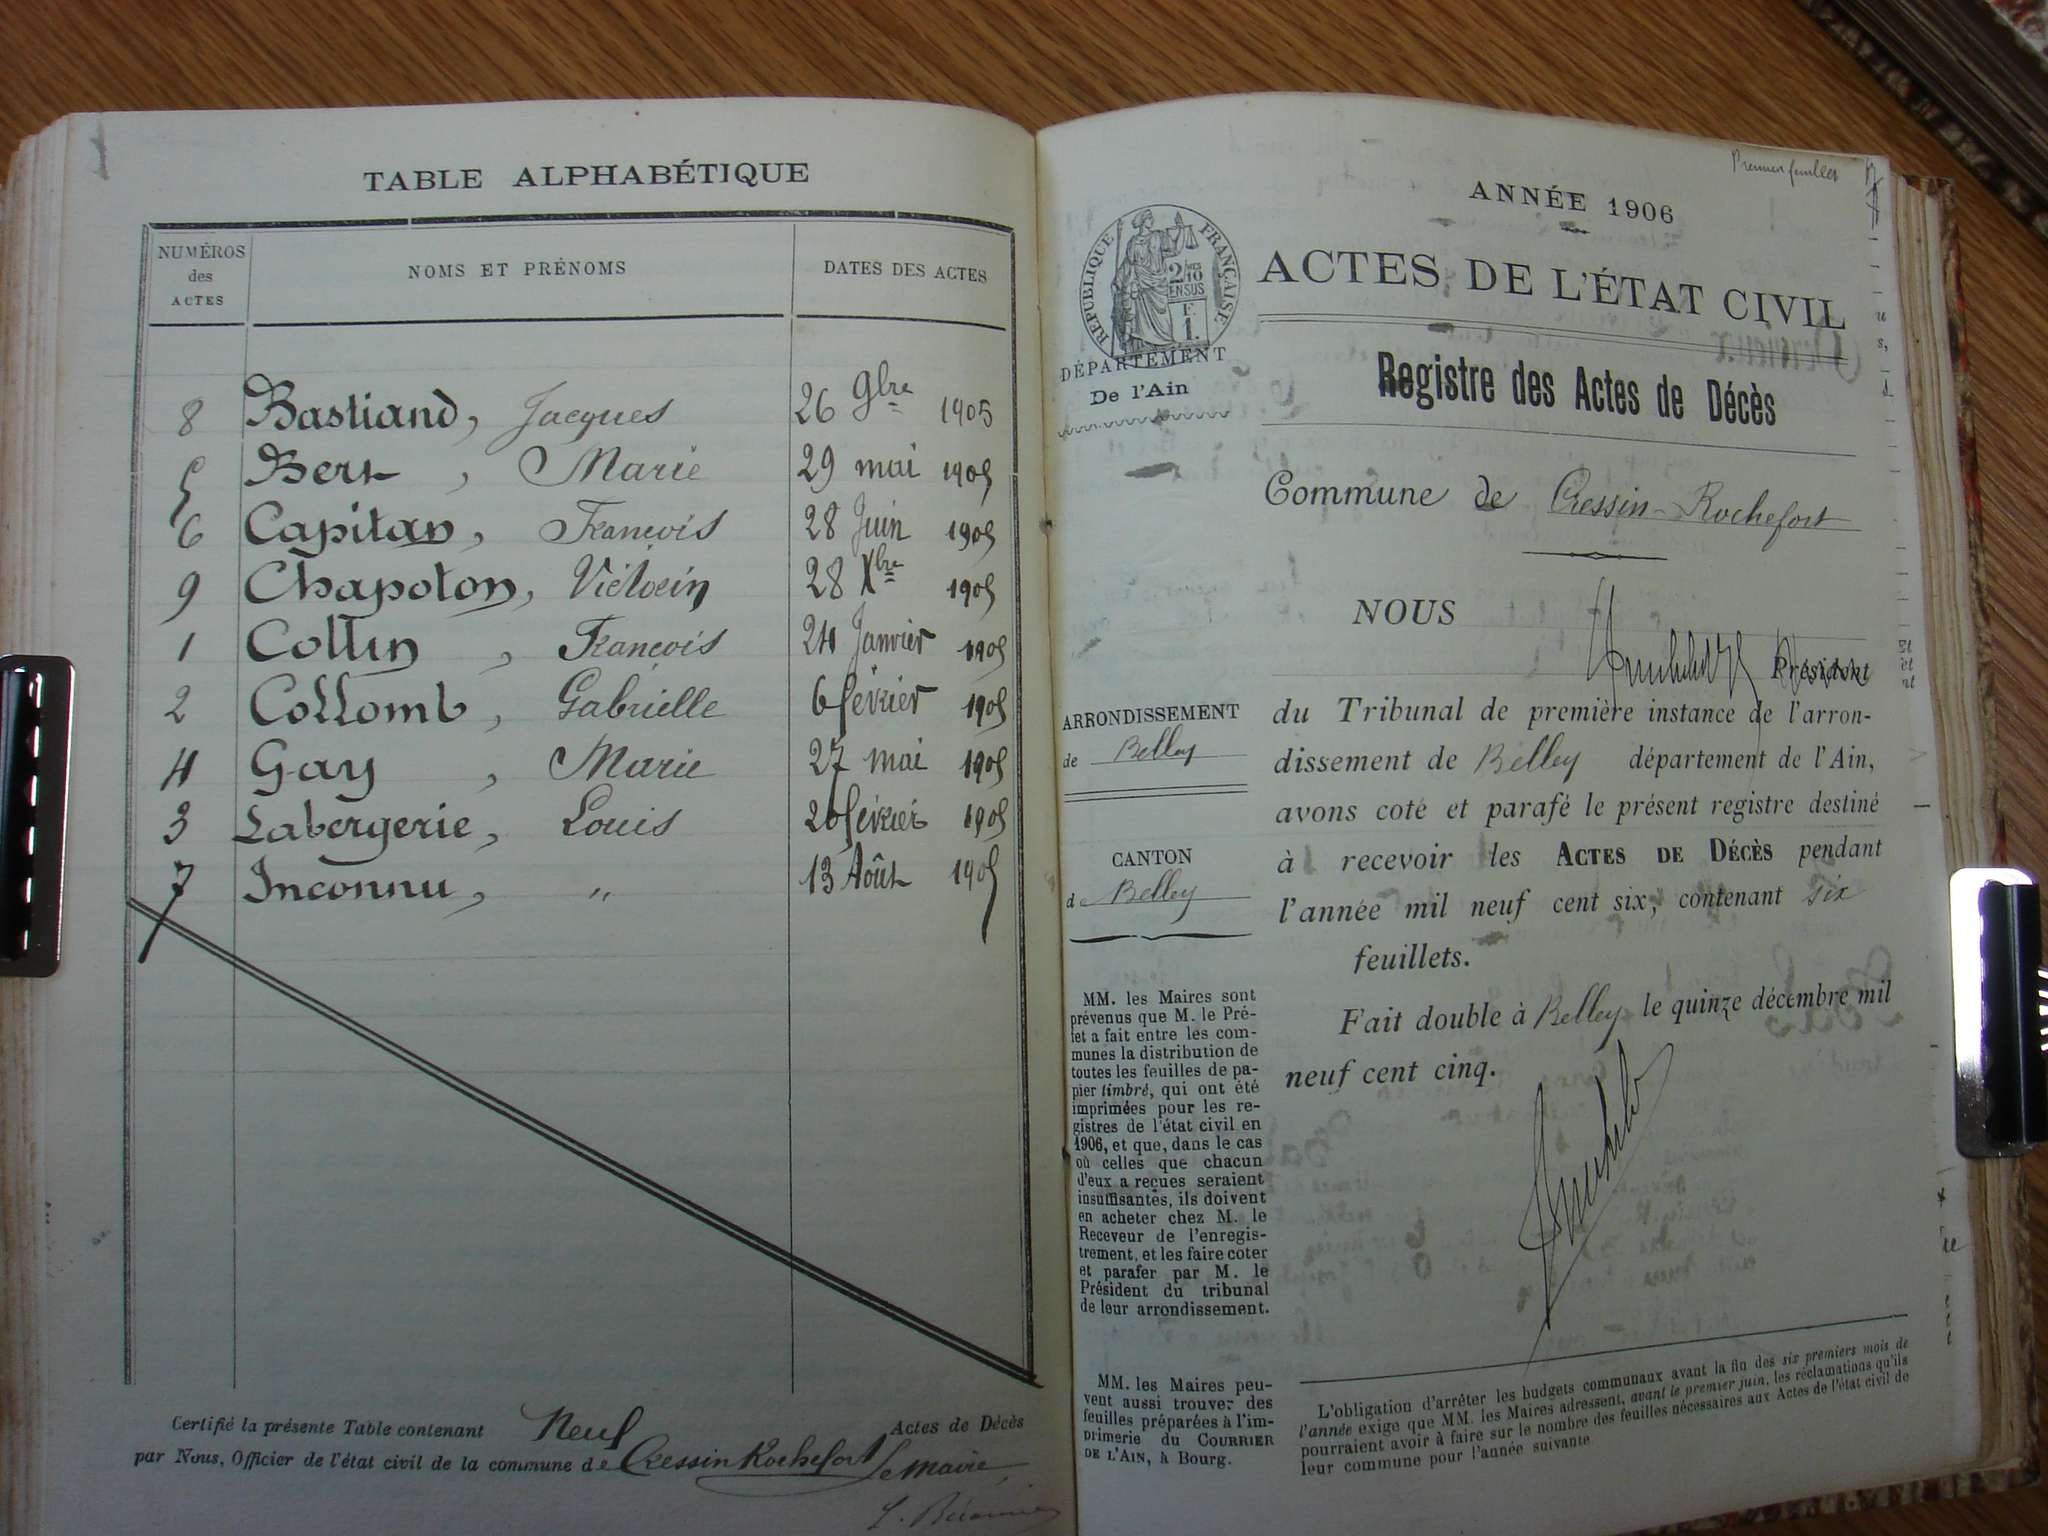 TABLE ALPHABÉTIQUE
NUMÉROS des ACTES NOMS ET PRÉNOMS DATES DES ACTES
8 Bastiand, Jacques 26 9bre 1905
5 Bert, Marie 29 mai 1905
6 Capitan, François 28 Juin 1905
9 Chapoton, 28 Xbre 1905
1 Collin, François 24 Janvier 1905
2 Collomb, Gabrielle 6 février 1905
4 Gay, Marie 27 mai 1905
3 Labergerie, Louis 20 février 1905
7 Inconnu, " 13 Août 1905
Certifié la présente Table contenant Neuf Actes de Décès
par Nous, Officier de l'état civil de la commune de Cressin Rochefort
Le Maire,
Premier feuillet
ANNÉE 1906
RÉPUBLIQUE FRANÇAISE
2/10 EN SUS
F. 1.
ACTES DE L'ÉTAT CIVIL
DÉPARTEMENT
De l'Ain
Registre des Actes de Décès
Commune de Cressin-Rochefort
NOUS
Président
du Tribunal de première instance de l'arron-
dissement de Belley département de l'Ain,
avons coté et parafé le présent registre destiné
à recevoir les ACTES DE DÉCÈS pendant
l'année mil neuf cent six, contenant six
feuillets.
Fait double à Belley le quinze décembre mil
neuf cent cinq.
ARRONDISSEMENT
de Belley
CANTON
de Belley
MM. les Maires sont
prévenus que M. le Pré-
fet a fait entre les com-
munes la distribution de
toutes les feuilles de pa-
pier timbré, qui ont été
imprimées pour les re-
gistres de l'état civil en
1906, et que, dans le cas
où celles que chacun
d'eux a reçues seraient
insuffisantes, ils doivent
en acheter chez M. le
Receveur de l'enregis-
trement, et les faire coter
et parafer par M. le
Président du tribunal
de leur arrondissement.
MM. les Maires peu-
vent aussi trouver des
feuilles préparées à l'im-
primerie du COURRIER
DE L'AIN, à Bourg.
L'obligation d'arrêter les budgets communaux avant la fin des six premiers mois de
l'année exige que MM. les Maires adressent, avant le premier juin, les réclamations qu'ils
pourraient avoir à faire sur le nombre des feuilles nécessaires aux Actes de l'état civil de
leur commune pour l'année suivante.